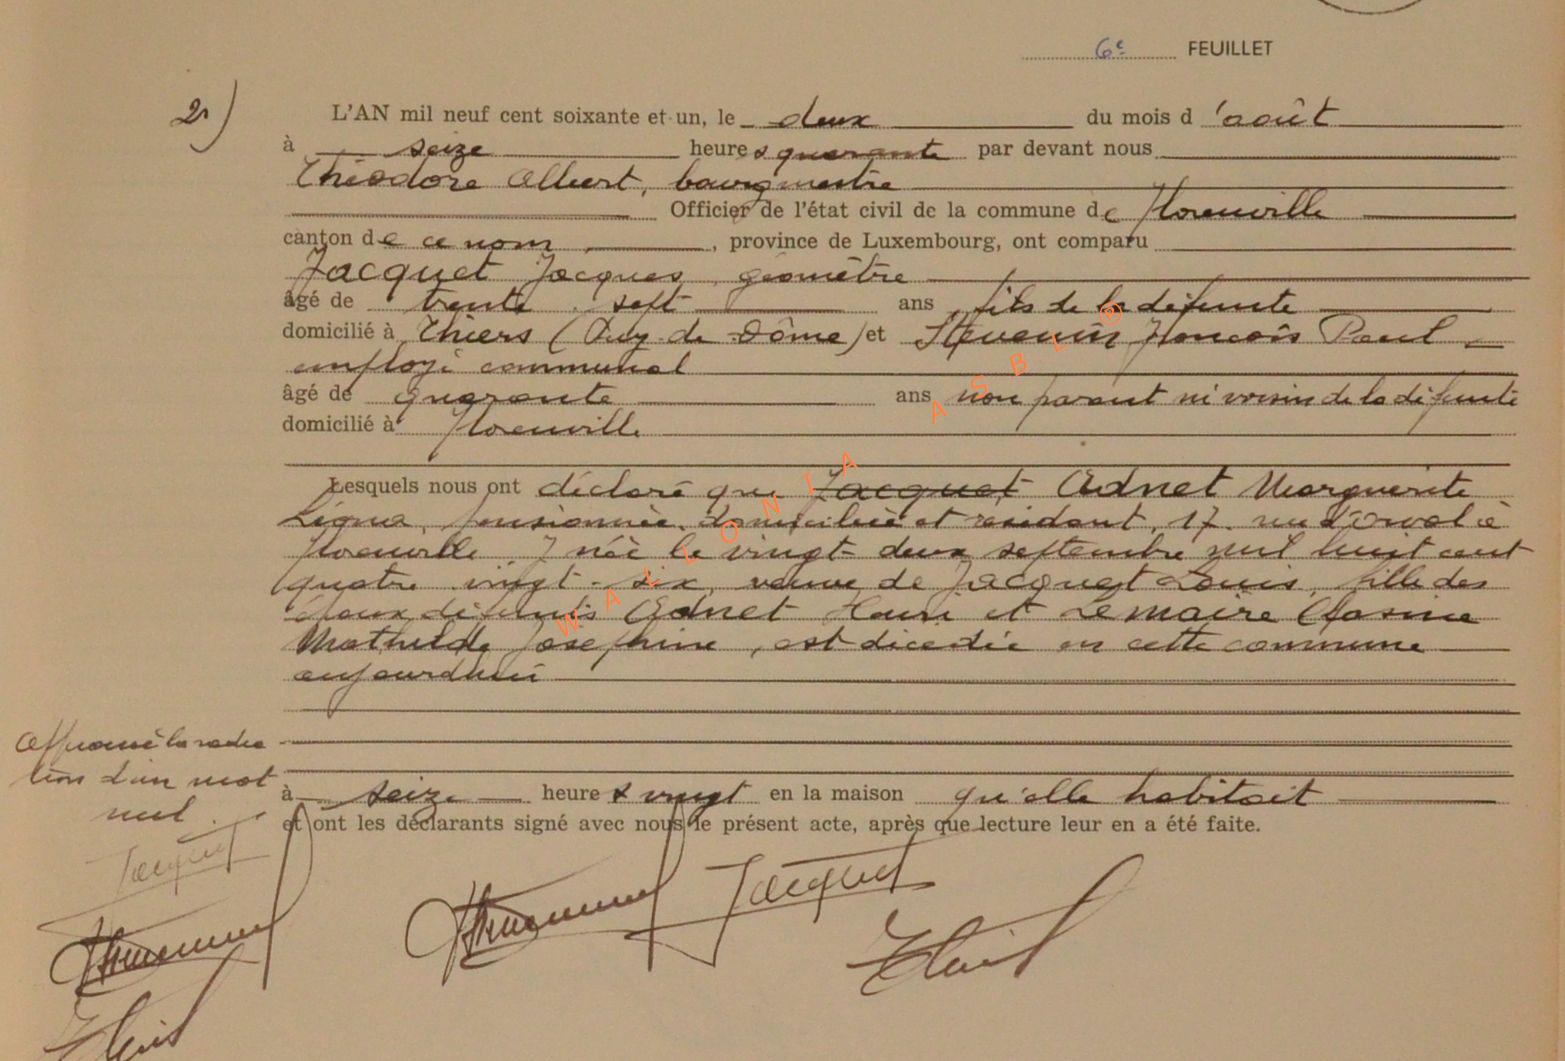 6e FEUILLET
21)
L'AN mil neuf cent soixante et un, le deux du mois d'août
à seize heures quarante par devant nous
Théodore Albert, bourgmestre
Officier de l'état civil de la commune de Florenville
canton de ce nom, province de Luxembourg, ont comparu
Jacquet Jacques, géomètre
âgé de trente-sept ans, fils de la défunte
domicilié à Thiers (Puy-de-Dôme) et Stevenin François Paul
employé communal
âgé de quarante ans, non parent ni voisin de la défunte
domicilié à Florenville
Lesquels nous ont déclaré que Jacquet Adnet Marguerite
pensionnée, domiciliée et résidant, 17, rue d'Orval à
Florenville y née le vingt-deux septembre mil huit cent
quatre vingt-six, veuve de Jacquet Louis, fille des
deux défunts Adnet Henri et Lemaire
Mathilde Josephine, est décédée en cette commune
aujourd'hui
à seize heures vingt en la maison qu'elle habitait
et ont les déclarants signé avec nous le présent acte, après que lecture leur en a été faite.
Approuvé la radia
tion d'un mot
nul.
Jacquet
Jacquet
WALLONIA ASBL ®